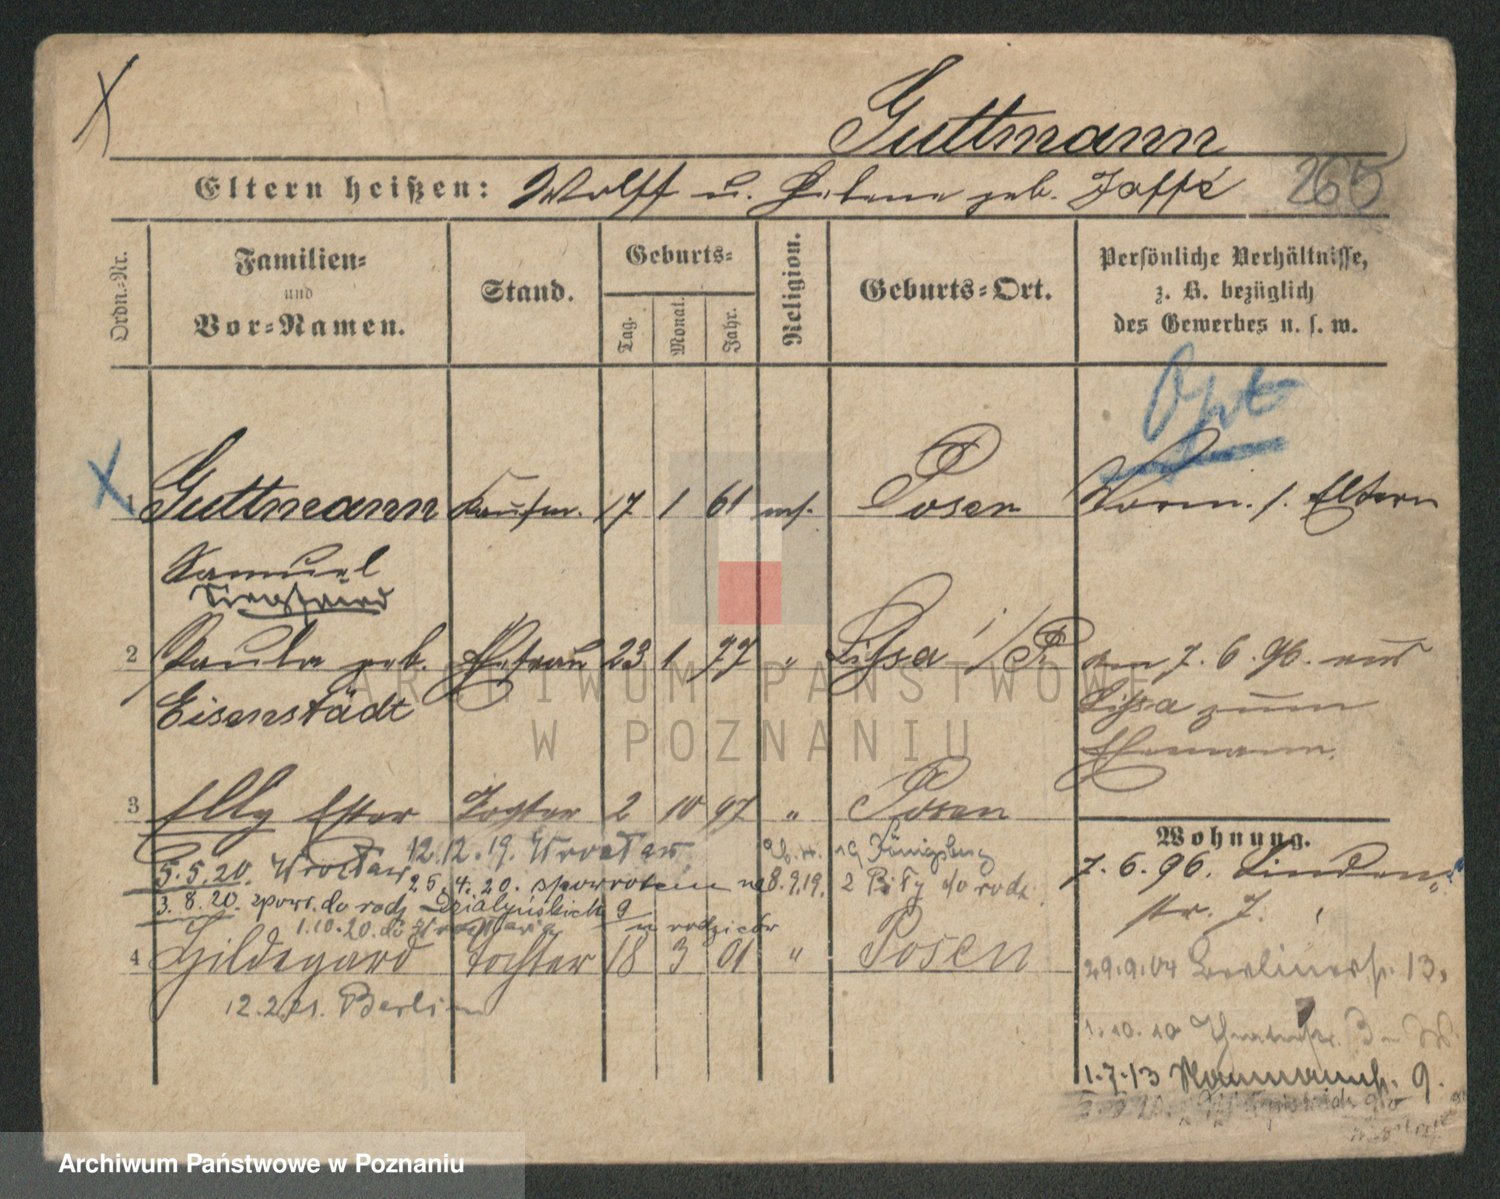 Guttmann
Eltern heißen: Wolff u. Helene geb. Joffé 265
Ordn.-Nr. Familien- und Vor-Namen. Stand. Geburts- Tag. Monat. Jahr. Religion. Geburts-Ort. Persönliche Verhältnisse, z. B. bezüglich des Gewerbes u. s. w.
Opt
1 Guttmann Kaufm. 17 1 61 mos. Posen Vorm. s. Eltern
Samuel
2 Paula geb. Ehefrau 23 1 77 " Lissa i/P den 7. 6. 96. aus
Eisenstädt Lissa zum
Ehemann.
3 Elly Ester Tochter 2 10 97 " Posen
Wohnung.
12.12.19. Wrocław 19 Königsberg
5.5.20. Wrocław 25.4.20. spowrotem 8.9.19. 2 Piły do rodz.
7. 6. 96. Linden-
str. 7.
3.8.20. zpow. do rodz Działyńskich 9
1.10.20. do u rodziców
4 Hildegard Tochter 18 3 01 " Posen
29.9.04 Berlinerstr. 13.
12.2.21. Berlin
1.10.10
1.7.13 Naumannstr. 9.
ARCHIWUM PAŃSTWOWE
W POZNANIU
Archiwum Państwowe w Poznaniu